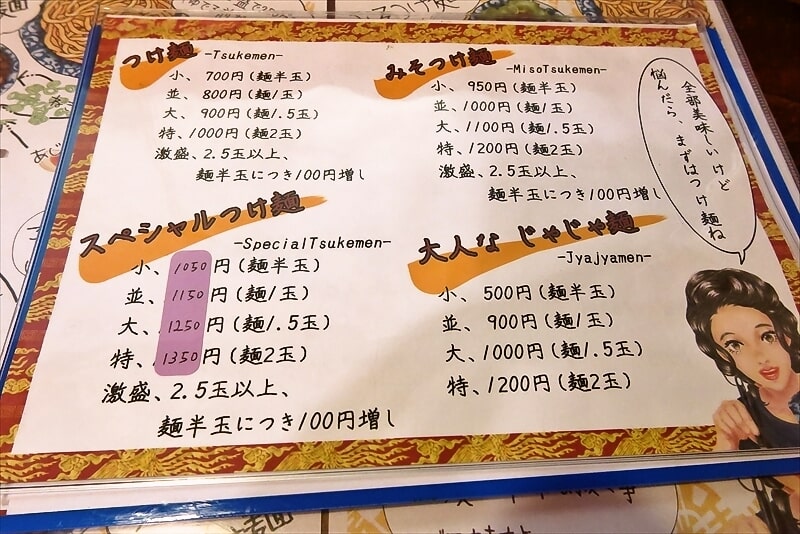 つけ麺 -Tsukemen-
小、700円(麺半玉)
並、800円(麺1玉)
大、900円(麺1.5玉)
特、1000円(麺2玉)
激盛、2.5玉以上、
麺半玉につき100円増し
みそつけ麺 -MisoTsukemen-
小、950円(麺半玉)
並、1000円(麺1玉)
大、1100円(麺1.5玉)
特、1200円(麺2玉)
激盛、2.5玉以上、
麺半玉につき100円増し
全部美味しいけど
悩んだら、まずはつけ麺ね
スペシャルつけ麺
-SpecialTsukemen-
小、1050円(麺半玉)
並、1150円(麺1玉)
大、1250円(麺1.5玉)
特、1350円(麺2玉)
激盛、2.5玉以上、
麺半玉につき100円増し
大人な じゃじゃ麺
-Jyajyamen-
小、500円(麺半玉)
並、900円(麺1玉)
大、1000円(麺1.5玉)
特、1200円(麺2玉)